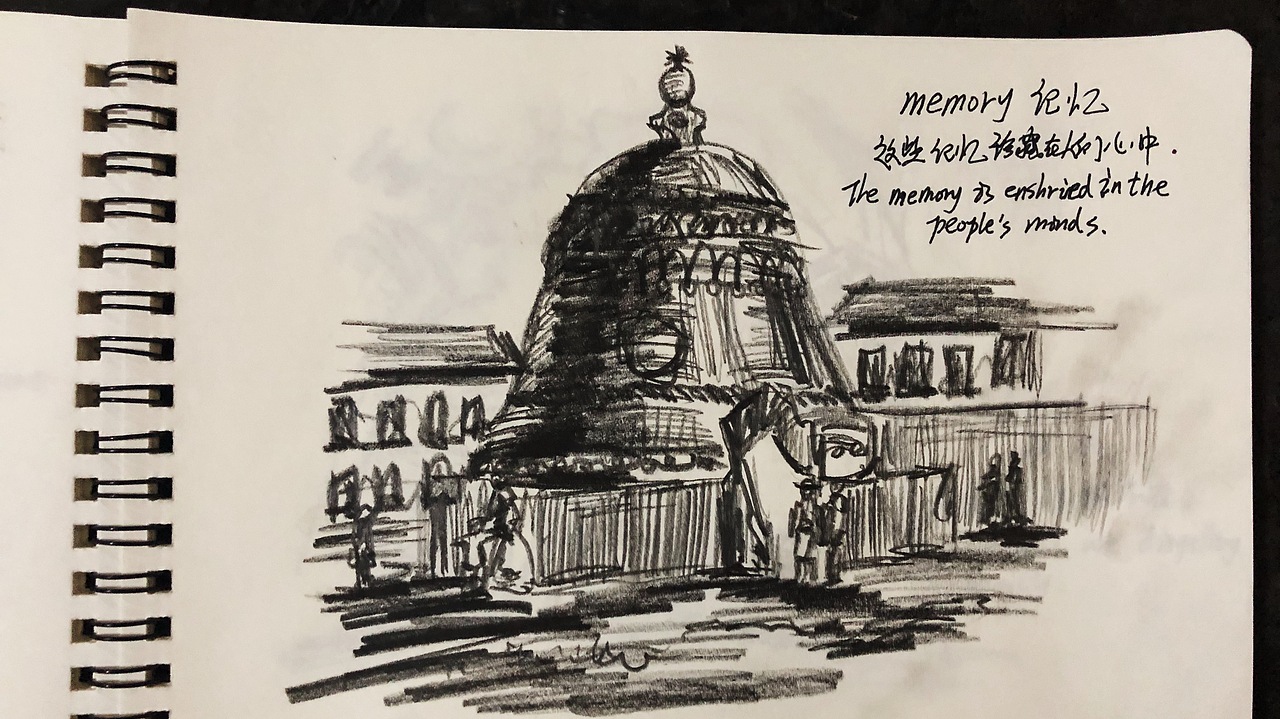 memory 记忆
这些记忆珍藏在人们心中.
The memory is enshried in the
people's minds.